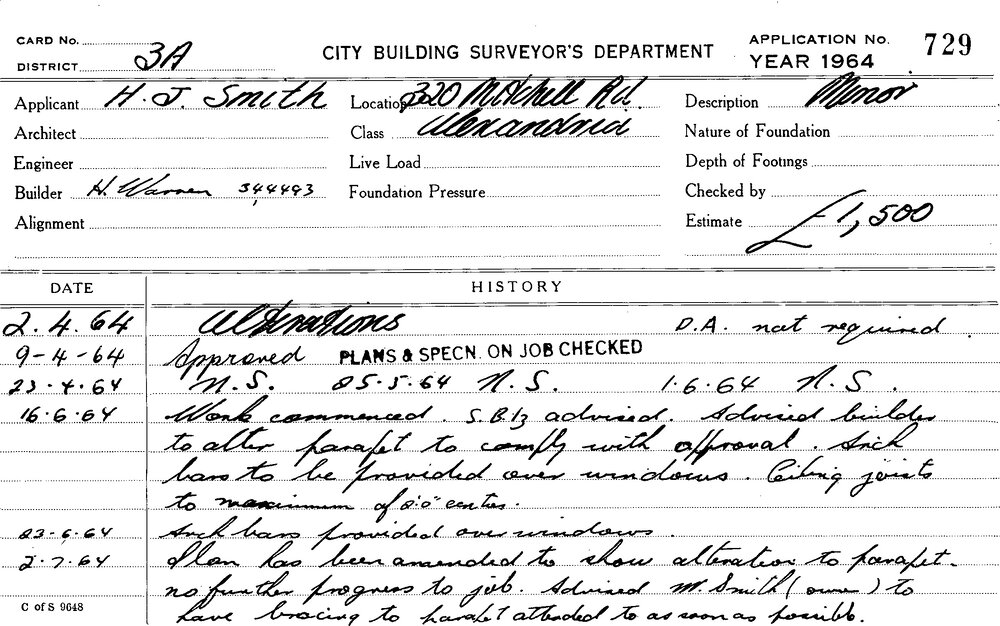 CARD No.
DISTRICT 3A
CITY BUILDING SURVEYOR'S DEPARTMENT
APPLICATION No. 729
YEAR 1964
Applicant H. J. Smith Location 320 Mitchell Rd. Description Minor
Architect Class Alexandria Nature of Foundation
Engineer Live Load Depth of Footings
Builder H. Warren 344493 Foundation Pressure Checked by
Alignment Estimate £1,500
DATE HISTORY
2.4.64 Alterations D.A. not required
9-4-64 Approved PLANS & SPECN. ON JOB CHECKED
23.4.64 N.S. 25.5.64 N.S. 1.6.64 N.S.
16.6.64 Work commenced. S.B. advised. Advised builder
to alter parapet to comply with approval. Arch
bars to be provided over windows. Ceiling joists
to maximum of centres.
23.6.64 Arch bars provided over windows.
2.7.64 Plan has been amended to show alteration to parapet.
no further progress to job. Advised M. Smith (owner) to
have bracing to parapet attended to as soon as possible.
C of S 9648